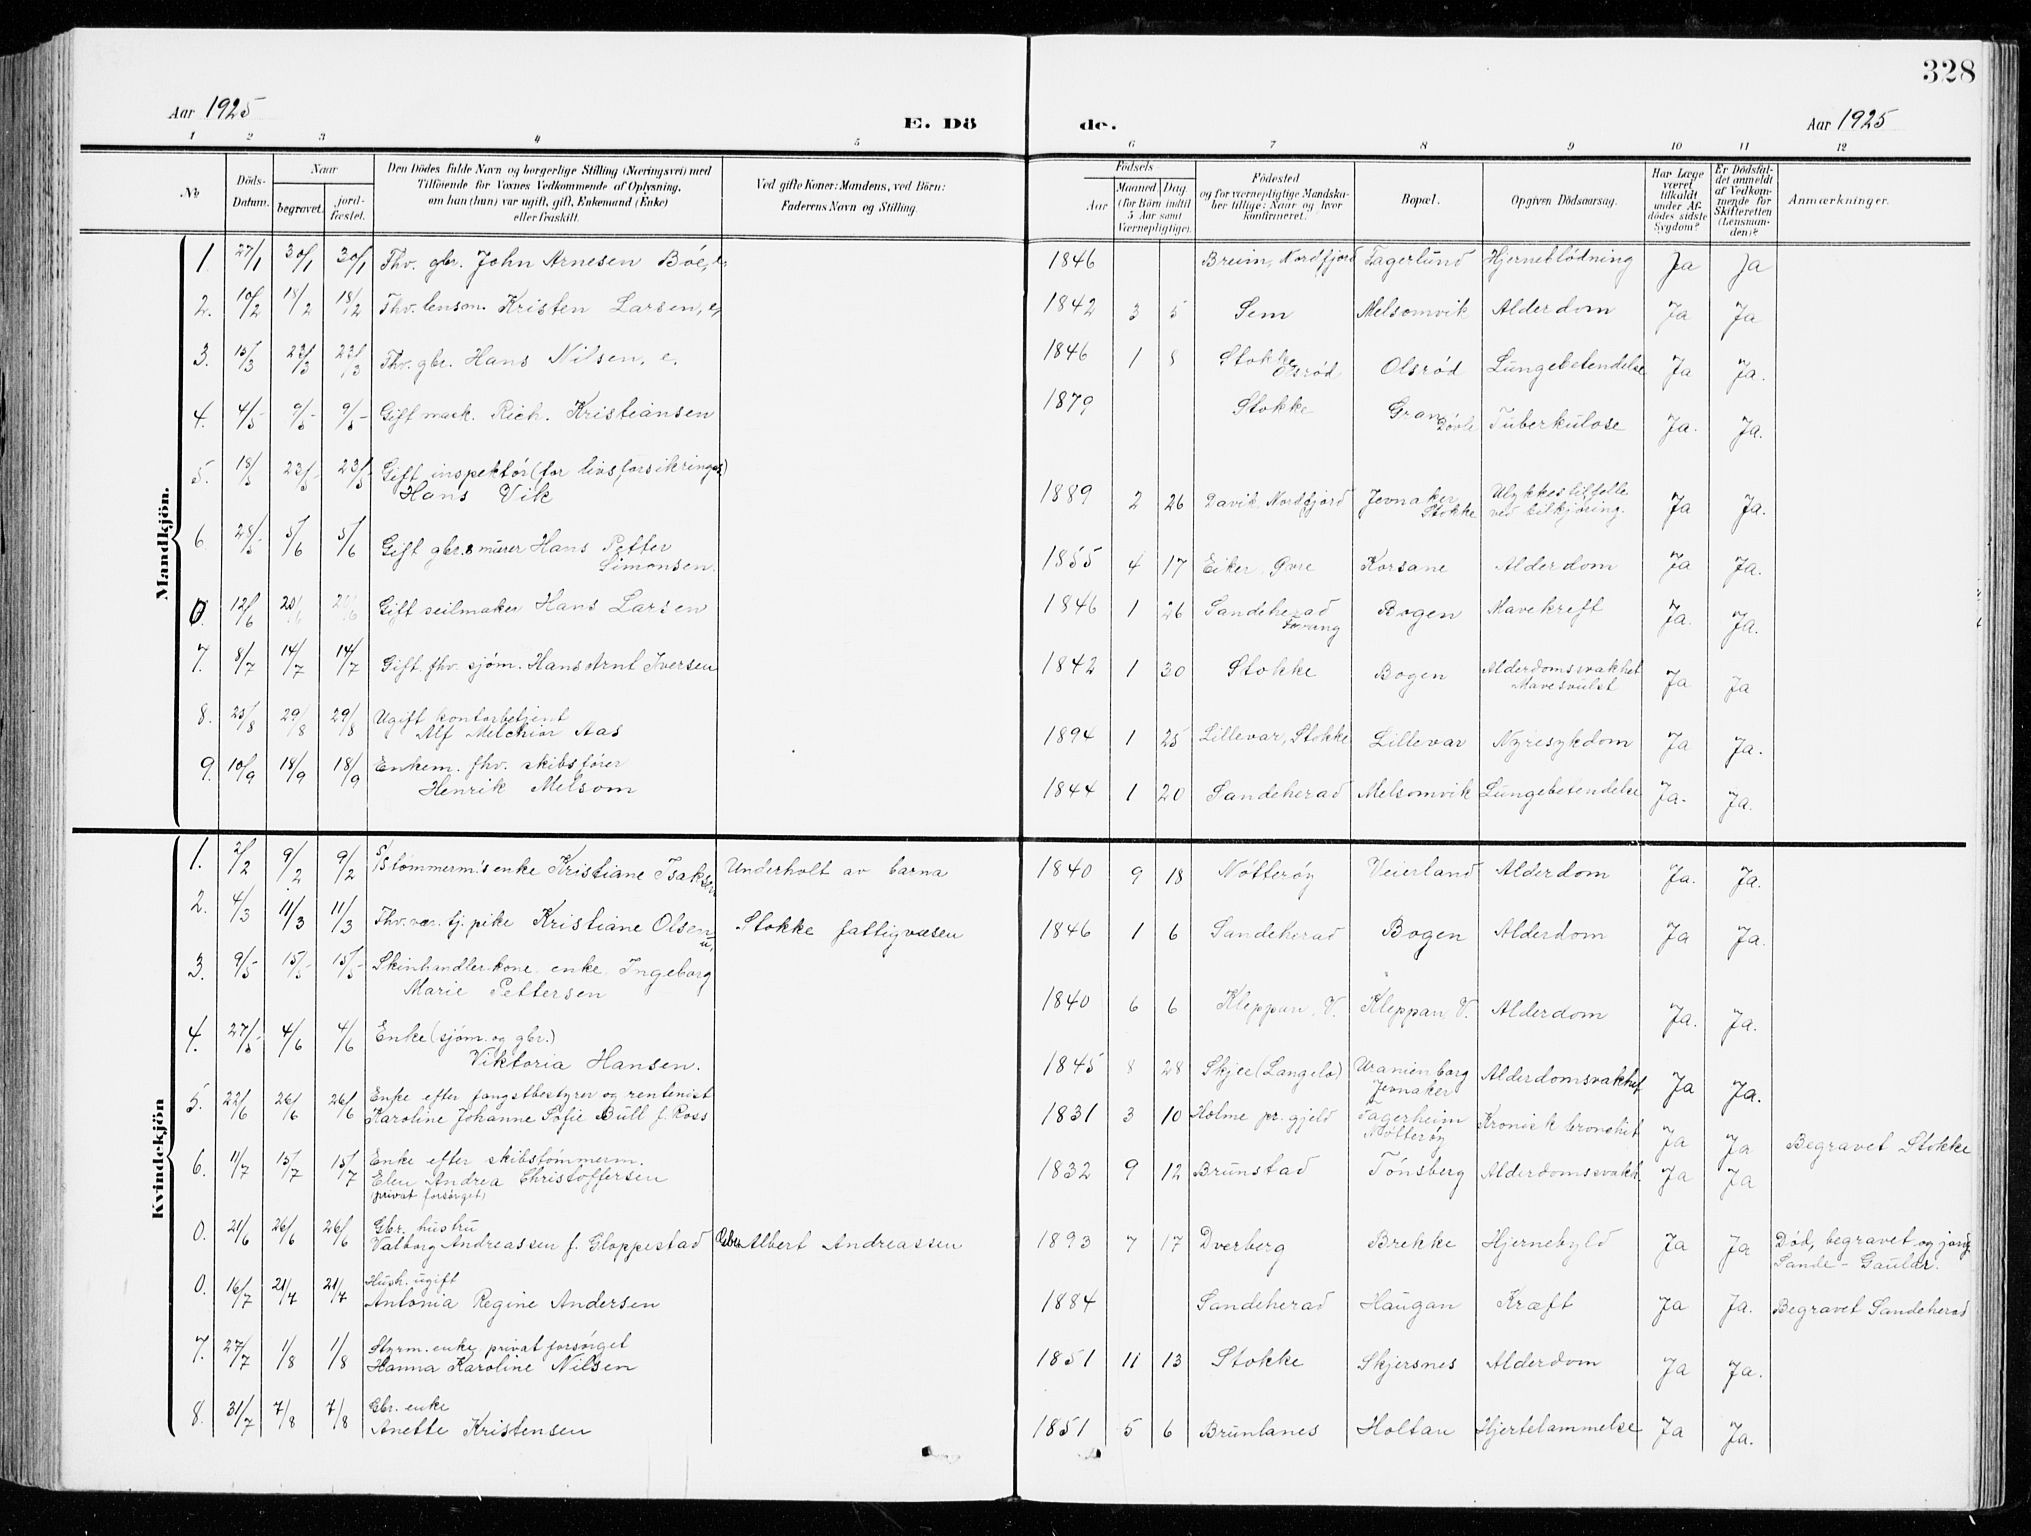 328
Aar 1925 E. Dö de. Aar 1925
1 2 3 4 5 6 7 8 9 10 11 12
No
Döds-Datum.
Naar
begravet.
jord-fæstet.
Den Dödes fulde Navn og borgerlige Stilling (Næringsvei) med
Tilföiende for Voxnes Vedkommende af Oplysning,
om han (hun) var ugift, gift, Enkemand (Enke)
eller fraskilt.
Ved gifte Koner: Mandens, ved Börn:
Faderens Navn og Stilling.
Födsels
Aar
Maaned. Dag.
(for Börn indtil
5 Aar samt
Værnepligtige).
Födested
og for værnepligtige Mandska-
ber tillige: Naar og hvor
konfirmeret.
Bopæl.
Opgiven Dödsaarsag.
Har Læge
været
tilkaldt
under Af-
dödes sidste
Sygdom?
Er Dödsfal-
det anmeldt
af Vedkom-
mende for
Skifteretten
(Lensman-
den)?
Anmærkninger.
Mandkjön.
1 27/1 30/1 30/1 Fhv. gbr. John Arnesen Böe, e. 1846 Breim, Nordfjord Fagerlund Hjerneblödning Ja Ja
2. 10/2 18/2 18/2 Fhv. lensm. Kristen Larsen, e, 1842 3 5 Sem Melsomvik Alderdom Ja Ja
3. 15/3 23/3 23/3 Fhv. gbr. Hans Nilsen, e. 1846 1 8 Stokke Olsröd Olsröd Lungebetendelse Ja Ja.
4. 4/5 9/5 9/5 Gift mask. Rich. Kristiansen 1879 Stokke Gran Tuberkulose Ja. Ja.
5. 18/5 23/5 23/5 Gift inspektör (for livsforsikringer)
Hans Vik 1889 2 26 Davik, Nordfjord Jevnaker Stokke Ulykkestilfelle ved bilkjöring. Ja Ja.
6 28/5 5/6 5/6 Gift gbr. & murer Hans Petter
Simonsen. 1855 4 17 Eiker Övre Korsane Alderdom Ja Ja.
0. 12/6 20/6 20/6 Gift seilmaker Hans Larsen 1846 1 26 Sandeherad Bogen Mavekreft Ja. Ja.
7. 8/7 14/7 14/7 Gift fhv. sjöm. Hans Arnt Iversen 1842 1 30 Stokke Bogen Alderdomssvakhet Mavesvulst Ja Ja
8. 25/8 29/8 29/8 Ugift kontorbetjent
Alf Melchior Aas 1894 1 25 Lillevar, Stokke Lillevar Nyresykdom Ja Ja.
9. 10/9 18/9 18/9 Enkem. fhv. skibsförer
Henrik Melsom 1844 1 20 Sandeherad Melsomvik Lungebetendelse Ja. Ja.
Kvindekjön
1. 2/2 9/2 9/2 S/Stömmerm's enke Kristiane Isaksen Underholt av barna 1840 9 18 Nötteröy Veierland Alderdom Ja. Ja.
2. 4/3 11/3 11/3 Fhv. vær. tj. pike Kristiane Olsen u. Stokke fattigvæsen 1846 1 6 Sandeherad Bogen Alderdom Ja Ja.
3. 9/5 15/5 15/5 Skinhandlerkone enke Ingeborg
Marie Pettersen 1840 6 6 Kleppan, V. Kleppan, V. Alderdom Ja. Ja.
4. 27/5 4/6 4/6 Enke (sjöm. og gbr.)
Viktoria Hansen. 1845 8 28 Skjee (Langelo) Uranienborg Jevnaker Alderdomsvakhet Ja Ja.
5. 22/6 26/6 26/6 Enke efter fangstbestyrer og rentenist
Karoline Johanne Sofie Bull f. Ross 1831 3 10 Holme pr. gjeld Fagerheim Nötteröy Kronisk bronchit Ja Ja Begravet Stokke
6. 11/7 15/7 15/7 Enke efter skibstömmerm.
Elen Andrea Christoffersen
(privat forsörget) 1832 9 12 Brunstad Tönsberg Alderdomssvakh. Ja Ja
0. 21/6 26/6 26/6 Gbr. hustru
Valborg Andreassen f. Gloppestad Gbr. Albert Andreassen 1893 7 17 Dverberg Brekke Hjernebyld Ja Ja Död, begravet og jordf.
Sande - Gaular.
0. 16/7 21/7 21/7 Hush. ugift
Antonia Regine Andersen 1884 Sandeherad Haugan Kræft Ja Ja. Begravet Sandeherad
7. 27/7 1/8 1/8 Styrm. enke privat forsörget
Hanna Karoline Nilsen 1851 11 13 Stokke Skjersnes Alderdom Ja Ja.
8. 31/7 7/8 7/8 Gbr. enke
Anette Kristensen 1851 5 6 Brunlanes Holtan Hjertelammelse Ja Ja.